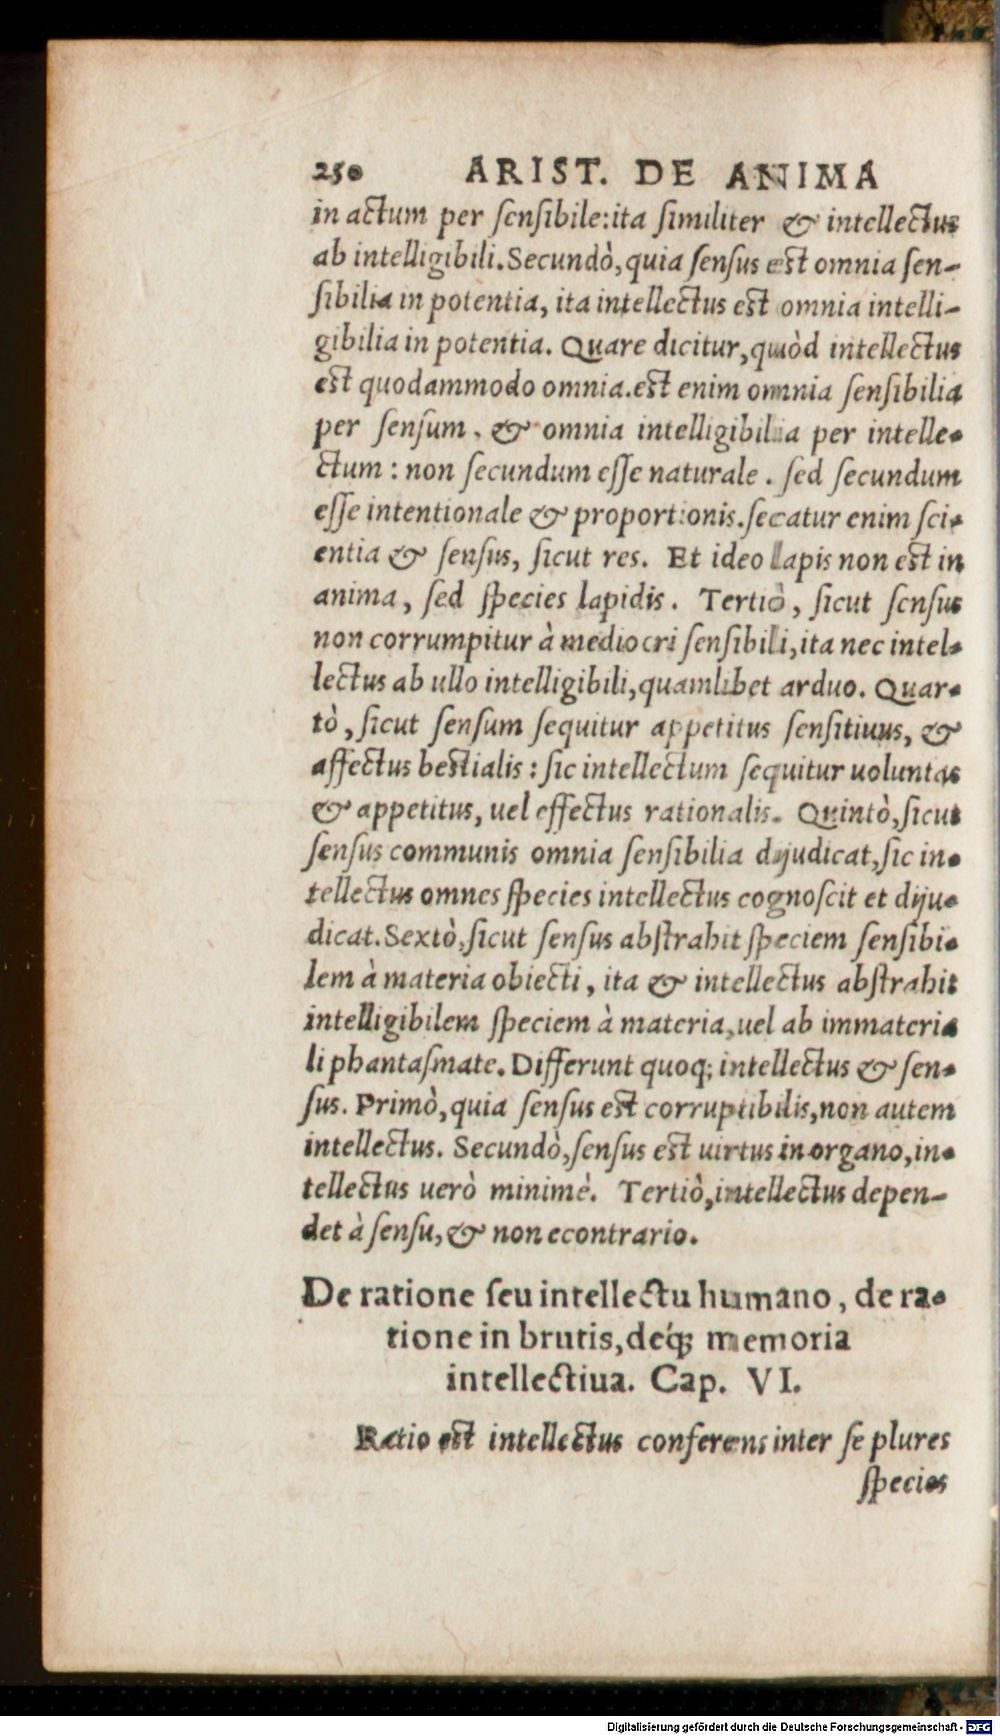 250 ARIST. DE ANIMA
in actum per ſenſibile: ita ſimiliter & intellectus
ab intelligibili. Secundò, quia ſenſus est omnia ſen-
ſibilia in potentia, ita intellectus est omnia intelli-
gibilia in potentia. Quare dicitur, quòd intellectus
est quodammodo omnia. est enim omnia ſenſibilia
per ſenſum, & omnia intelligibilia per intelle-
ctum: non ſecundum eſſe naturale. ſed ſecundum
eſſe intentionale & proportionis. ſecatur enim ſci-
entia & ſenſus, ſicut res. Et ideo lapis non est in
anima, ſed ſpecies lapidis. Tertiò, ſicut ſenſus
non corrumpitur à mediocri ſenſibili, ita nec intel-
lectus ab ullo intelligibili, quamlibet arduo. Quar-
tò, ſicut ſenſum ſequitur appetitus ſenſitiuus, &
affectus bestialis: ſic intellectum ſequitur uoluntas
& appetitus, uel effectus rationalis. Quintò, ſicut
ſenſus communis omnia ſenſibilia dijudicat, ſic in-
tellectus omnes ſpecies intellectus cognoſcit et diju-
dicat. Sextò, ſicut ſenſus abſtrahit ſpeciem ſenſibi-
lem à materia obiecti, ita & intellectus abſtrahit
intelligibilem ſpeciem à materia, uel ab immateria
li phantaſmate. Differunt quoq; intellectus & ſen-
ſus. Primò, quia ſenſus est corruptibilis, non autem
intellectus. Secundò, ſenſus est uirtus in organo, in-
tellectus uerò minimè. Tertiò, intellectus depen-
det à ſenſu, & non econtrario.
De ratione ſeu intellectu humano, de ra-
tione in brutis, deq́; memoria
intellectiua. Cap. VI.
Ratio est intellectus conferens inter ſe plures
ſpecies
Digitalisierung gefördert durch die Deutsche Forschungsgemeinschaft - DFG